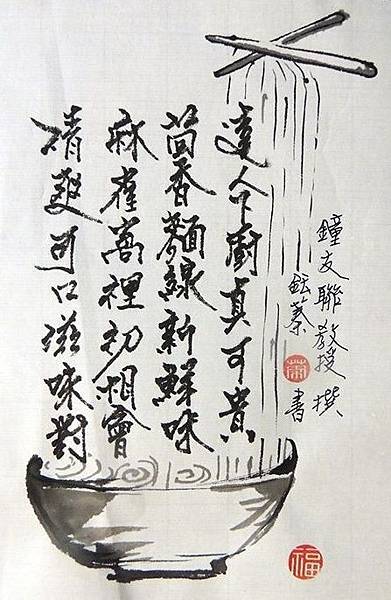 鐘友聯教授撰
書
達人下廚真可貴
茴香麵線新鮮味
麻雀窩裡初相會
清爽可口滋味對
福